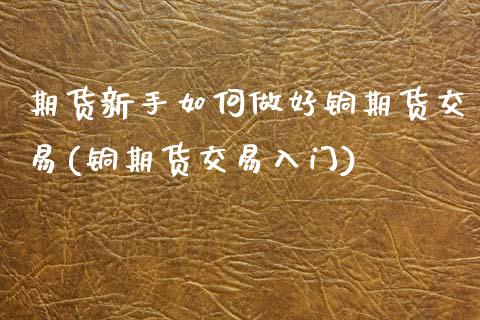 期货新手如何做好铜期货交
易(铜期货交易入门)